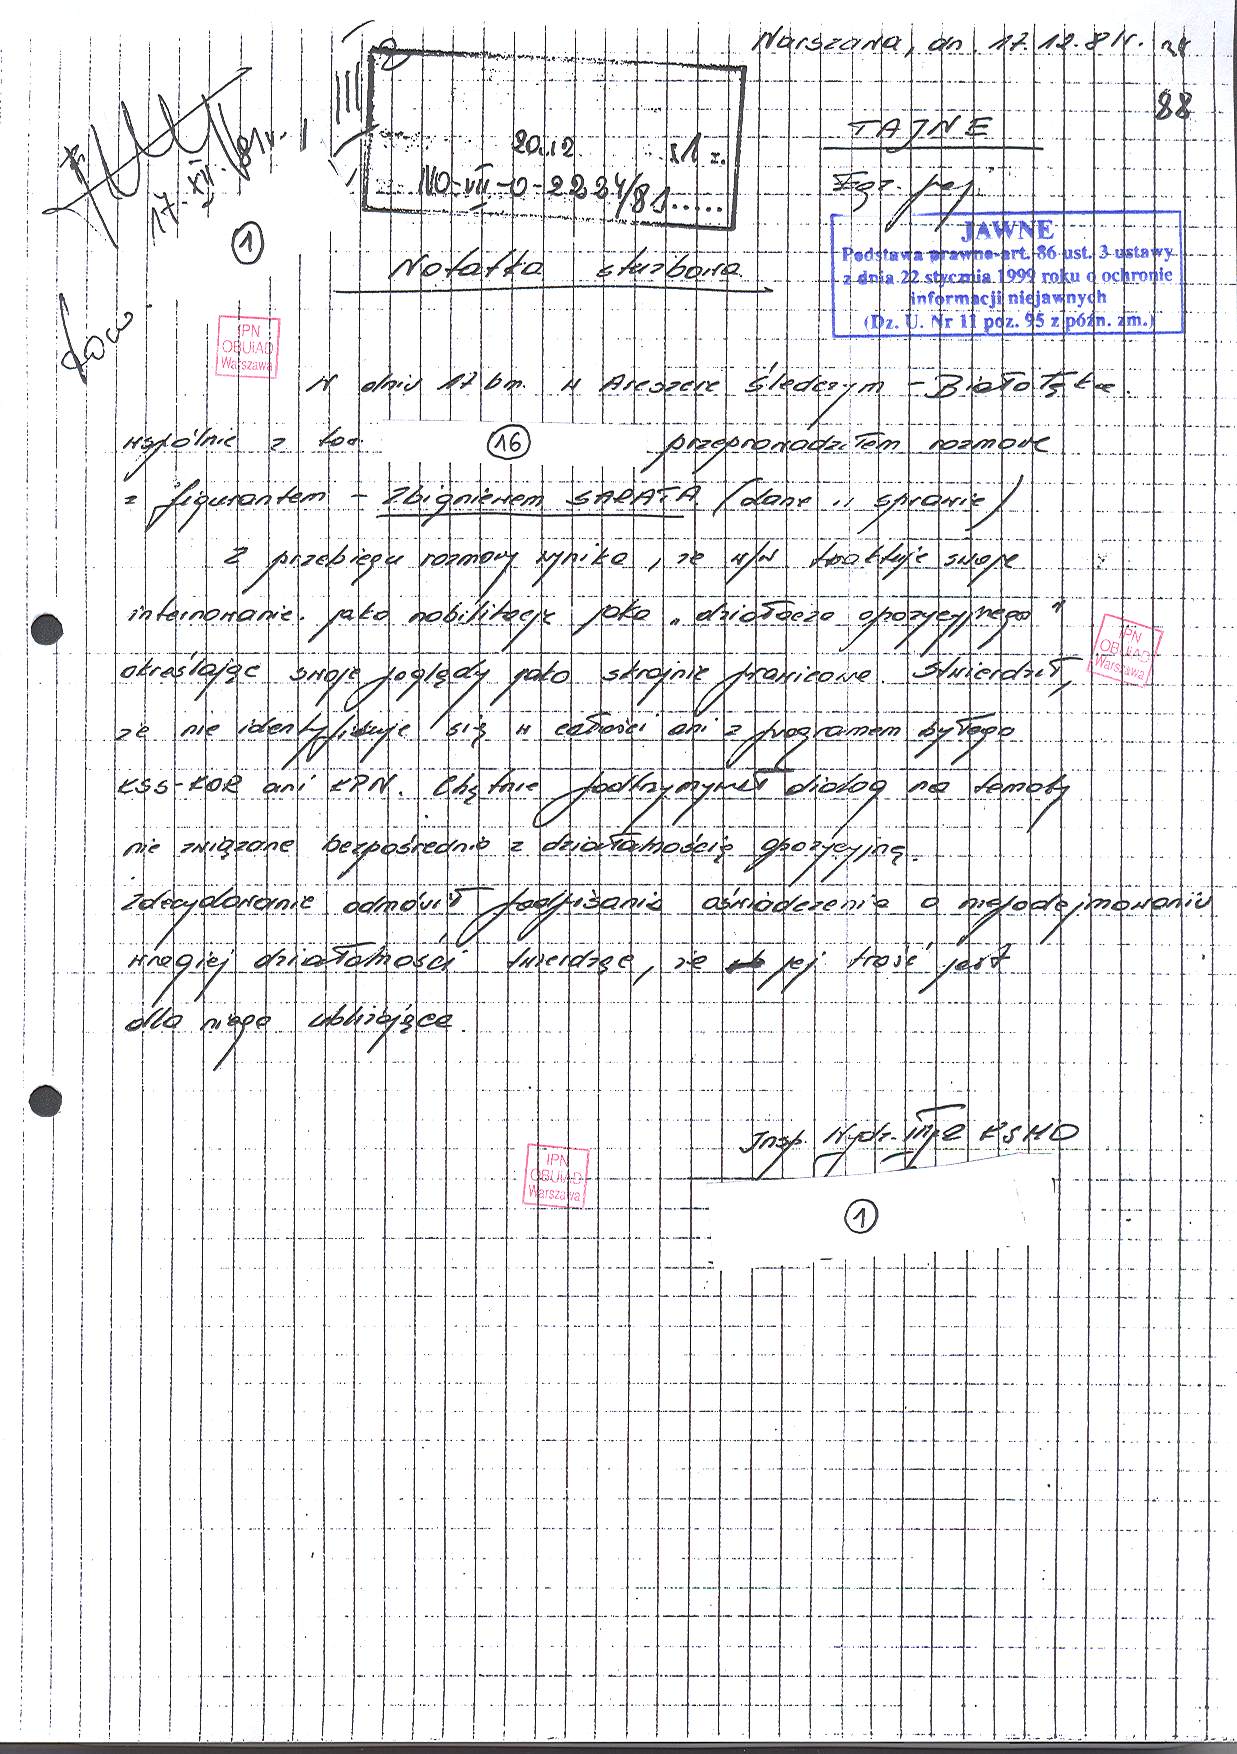 Warszawa, dn. 17.12.81r.
88
TAJNE
Egz. poj.
20.12 81 r.
MO-VII-0-2224/81.....
17.XII.81r.
1
Notatka służbowa
JAWNE
Podstawa prawna-art. 86 ust. 3 ustawy
z dnia 22 stycznia 1999 roku o ochronie
informacji niejawnych
(Dz. U. Nr 11 poz. 95 z późn. zm.)
IPN
OBUiAD
Warszawa
W dniu 17 bm. w Areszcie Śledczym – Białołęka
wspólnie z tow. 16 przeprowadziłem rozmowę
z figurantem – Zbigniewem SARATA (dane w sprawie)
Z przebiegu rozmowy wynika, że w/w traktuje swoje
internowanie jako nobilitację jako „działacza opozycyjnego"
określając swoje poglądy jako skrajnie prawicowe. Stwierdził,
że nie identyfikuje się w całości ani z programem byłego
KSS-KOR ani KPN. Chętnie podtrzymywał dialog na tematy
nie związane bezpośrednio z działalnością opozycyjną.
Zdecydowanie odmówił podpisania oświadczenia o niepodejmowaniu
wrogiej działalności twierdząc, że jej treść jest
dla niego ubliżająca.
IPN
OBUiAD
Warszawa
Insp. Wydz. III-2 KSMO
IPN
OBUiAD
Warszawa
1